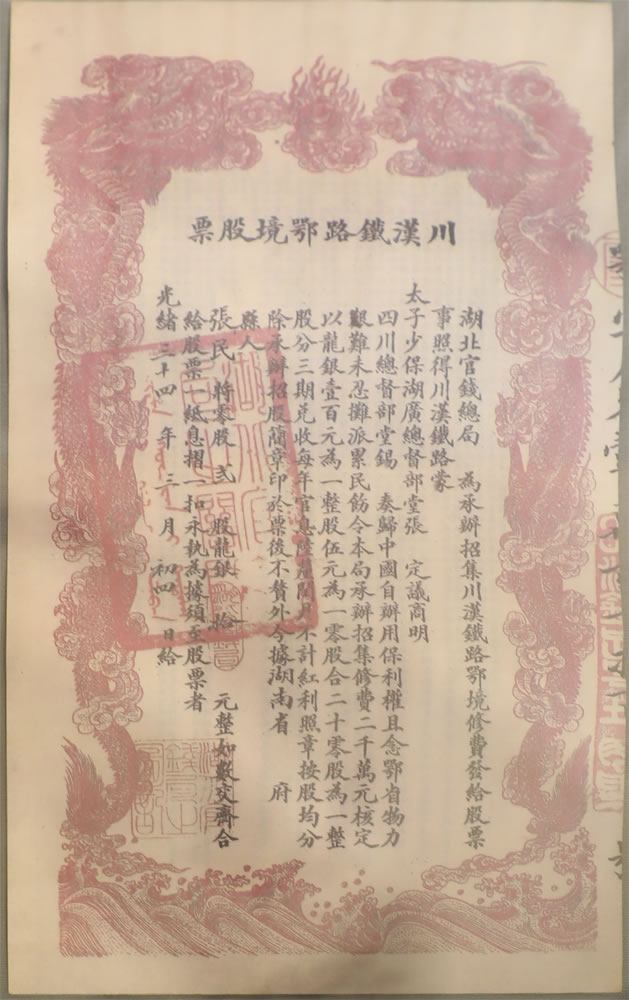 川漢鐵路鄂境股票
湖北官錢總局 為承辦招集川漢鐵路鄂境修費發給股票
事照得川漢鐵路蒙
太子少保湖廣總督部堂張 定議商明
四川總督部堂錫 奏歸中國自辦用保利權且念鄂省物力
艱難未忍攤派累民飭令本局承辦招集修費二千萬元核定
以龍銀壹百元為一整股伍元為一零股合二十零股為一整
股分三期兌收每年官息陸釐閏月不計紅利照章按股均分
除承辦招股簡章印於票後不贅外今據湖南省 府
縣人
張民 將零股 弍 股龍銀 拾 元整如數交齊合
給股票一紙息摺一扣永執為據須至股票者
光緒三十四年三月初四日給